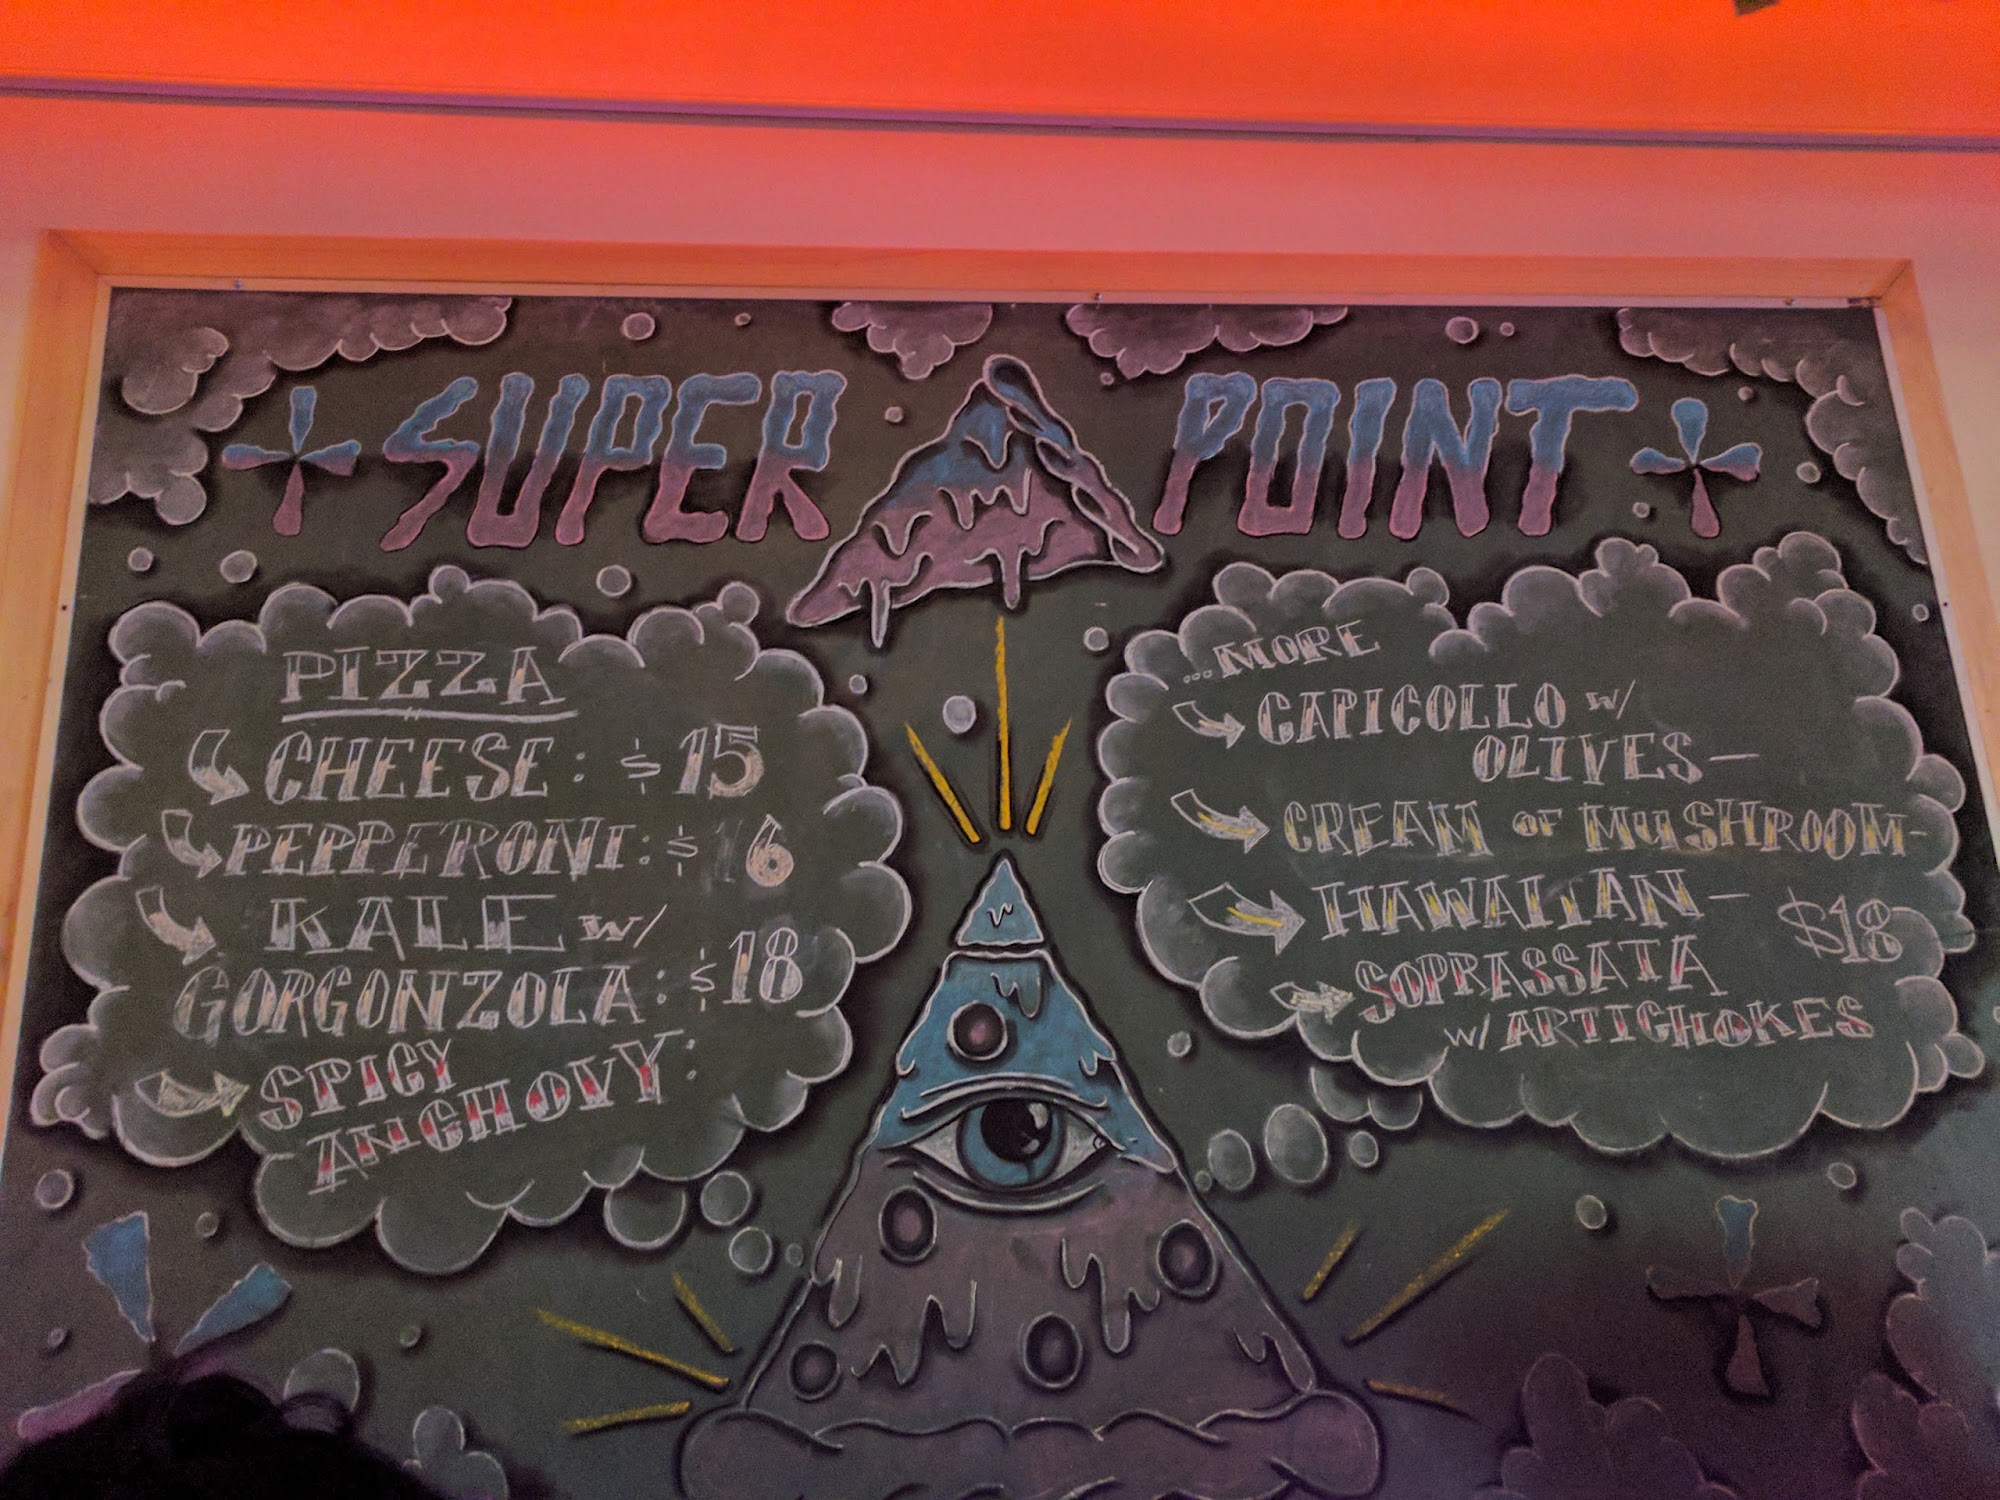 SUPER POINT
PIZZA
CHEESE: $15
PEPPERONI: $16
KALE w/
GORGONZOLA: $18
SPICY
ANCHOVY:
...MORE
CAPICOLLO w/
OLIVES—
CREAM OF MUSHROOM-
HAWAIIAN-
$18
SOPRASSATA
w/ ARTICHOKES